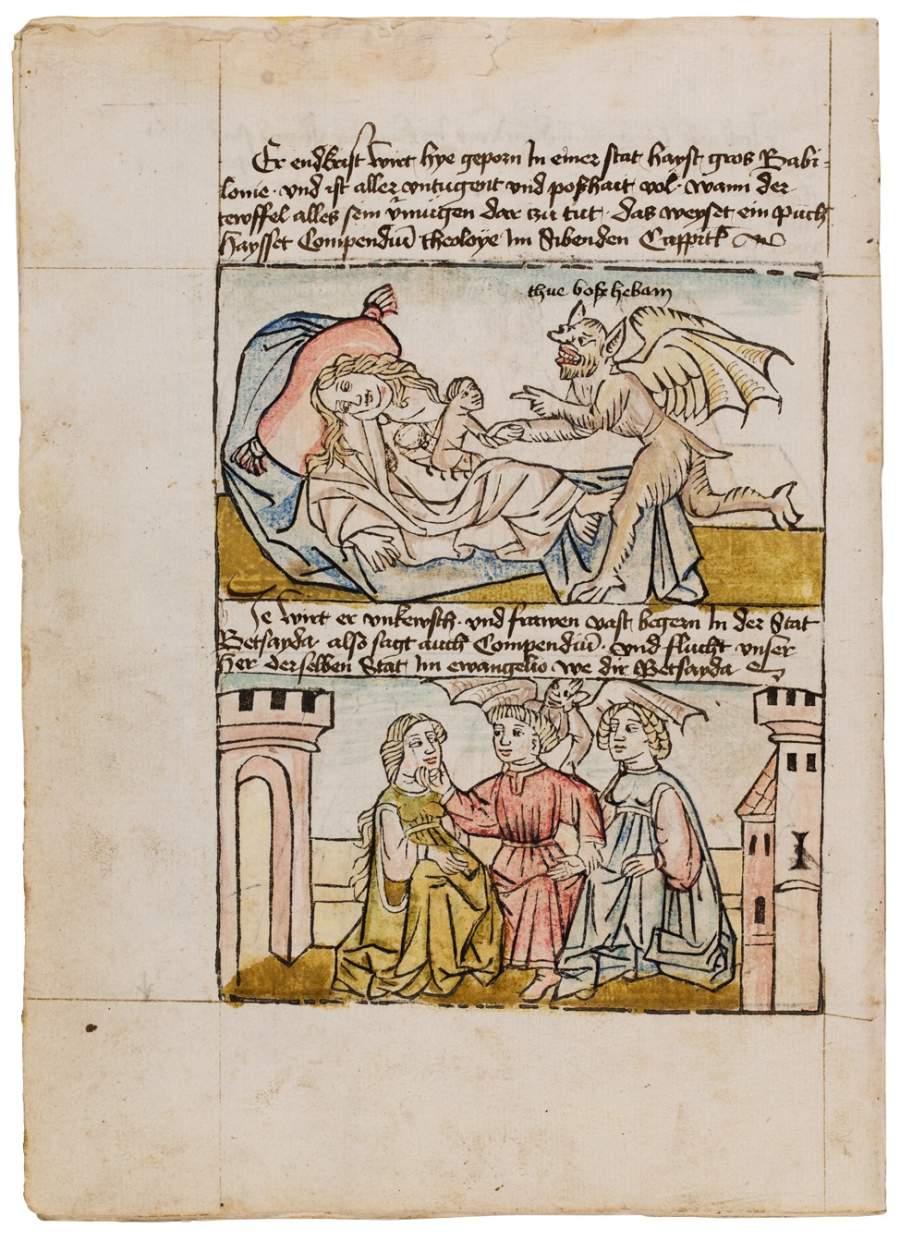 Er endkrist wirt hye geporn In einer stat hayst gros Babi-
lonie · vnd ist aller vntugent vnd poßhait vol · wann der
tewffel alles sein v̄mügen dar czu tut · das weyset ein puch
haysset Compendiū theoloye Im Sibenden Cappitl
thue boß hebam
Ie wirt er vnkewsch · vnd frawen vast begern In der Stat
Betsayda · also sagt auch Compendiū · vnd flucht vnser
her derselben Stat Im ewangelio we dir Betsayda